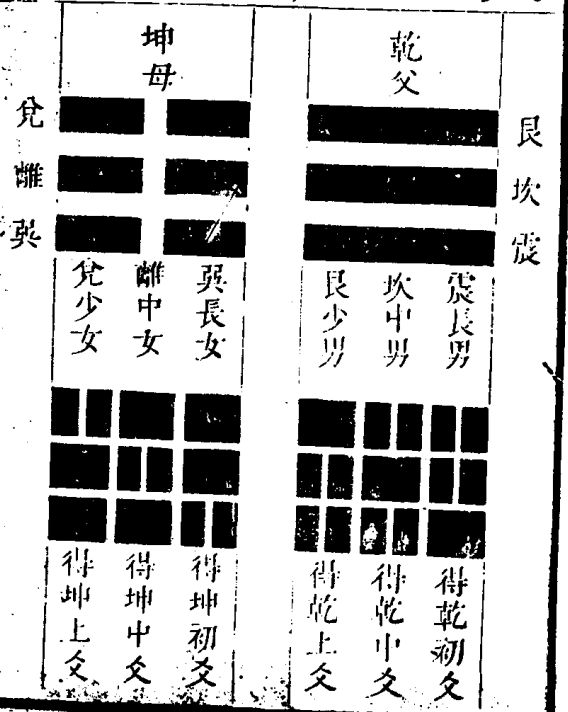 乾父
艮
坎
震
震長男
坎中男
艮少男
得乾初爻
得乾中爻
得乾上爻
坤母
兌
離
巽
巽長女
離中女
兌少女
得坤初爻
得坤中爻
得坤上爻